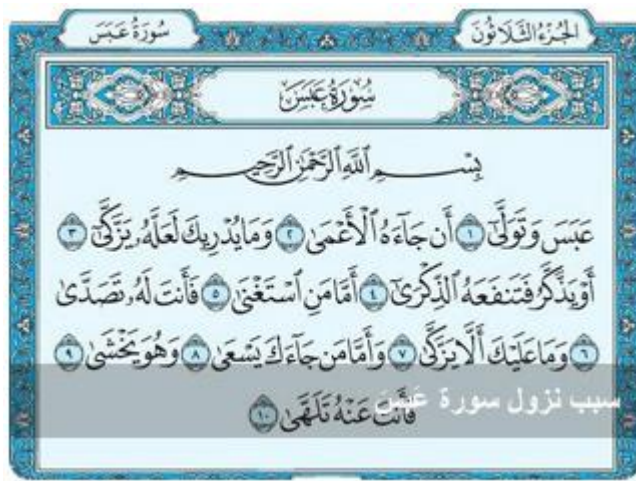 الجُزْءُ الثَّلَاثُونَ
سُورَةُ عَبَسَ
سُورَةُ عَبَسَ
بِسْمِ ٱللَّهِ ٱلرَّحْمَٰنِ ٱلرَّحِيمِ
عَبَسَ وَتَوَلَّىٰٓ ١ أَن جَآءَهُ ٱلْأَعْمَىٰ ٢ وَمَا يُدْرِيكَ لَعَلَّهُۥ يَزَّكَّىٰٓ ٣
أَوْ يَذَّكَّرُ فَتَنفَعَهُ ٱلذِّكْرَىٰٓ ٤ أَمَّا مَنِ ٱسْتَغْنَىٰ ٥ فَأَنتَ لَهُۥ تَصَدَّىٰ
٦ وَمَا عَلَيْكَ أَلَّا يَزَّكَّىٰ ٧ وَأَمَّا مَن جَآءَكَ يَسْعَىٰ ٨ وَهُوَ يَخْشَىٰ ٩
فَأَنتَ عَنْهُ تَلَهَّىٰ ١٠
سبب نزول سورة عَبَسَ